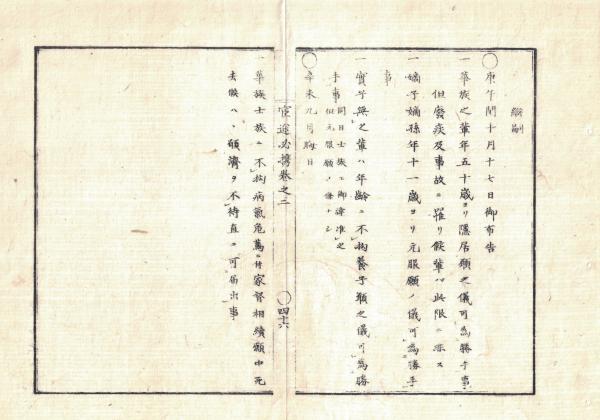 続副
〇庚午閏十月十七日御布告
一華族之輩年五十歳ヨリ隠居願之儀可為勝手事
但廃疾及事故ニ罹リ候輩ハ此限ニ非ス
一嫡子嫡孫年十一歳ヨリ元服願ノ儀可為勝手
事
一實子無之輩ハ年齢ニ不拘養子願之儀可為勝
手事
同日士族工御達准之
但元服願ノ條ナシ
〇辛未九月晦日
官途必携巻之二
〇四十六
一華族士族ニ不拘病氣危篤ニ付家督相續願中死
去候ハヽ願濟ヲ不待直ニ可届出事